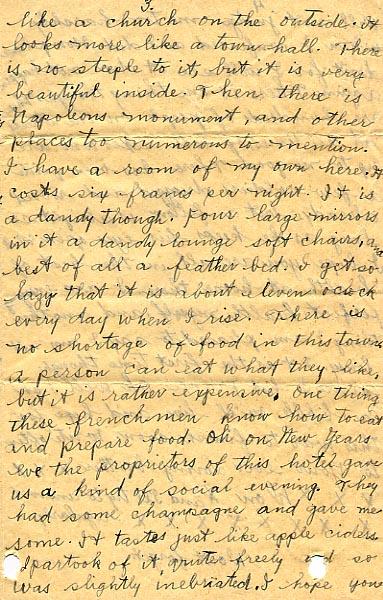 3.
like a church on the outside. It
looks more like a town hall. There
is no steeple to it, but it is very
beautiful inside. Then there is
Napoleons monument, and other
places too numerous to mention.
I have a room of my own here. It
costs six francs per night. It is
a dandy though. Four large mirrors
in it a dandy lounge soft chairs, and
best of all a feather bed. I get so
lazy that it is about eleven oclock
every day when I rise. There is
no shortage of food in this town
a person can eat what they like,
but it is rather expensive. One thing
these frenchmen know how to eat
and prepare food. Oh on New Years
eve the proprietors of this hotel gave
us a kind of social evening. They
had some champagne and gave me
some. It tastes just like apple cider.
I partook of it quite freely and so
was slightly inebriated. I hope you